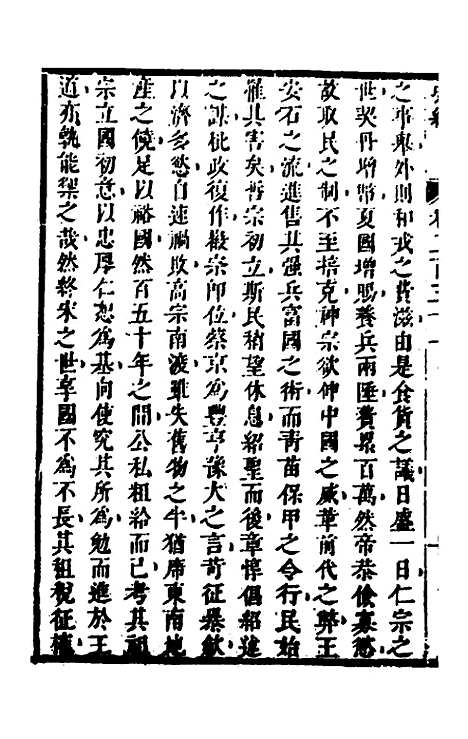 之事舉外則和戎之費滋由是食貨之議日盛一日仁宗之
世契丹增幣夏國增賜養兵兩陲費累百萬然帝恭儉寡慾
故取民之制不至掊克神宗欲伸中國之威革前代之弊王
安石之流進售其强兵富國之術而青苗保甲之令行民始
罹其害矣哲宗初立斯民稍望休息紹聖而後章惇倡紹述
之謀秕政復作徽宗卽位蔡京爲豐亨豫大之言苛征暴斂
以濟多慾自速禍敗高宗南渡雖失舊物之半猶席東南地
產之饒足以裕國然百五十年之間公私粗給而已考其祖
宗立國初意以忠厚仁恕爲基向使究其所爲勉而進於王
道亦孰能禦之哉然終宋之世享國不爲不長其租稅征榷